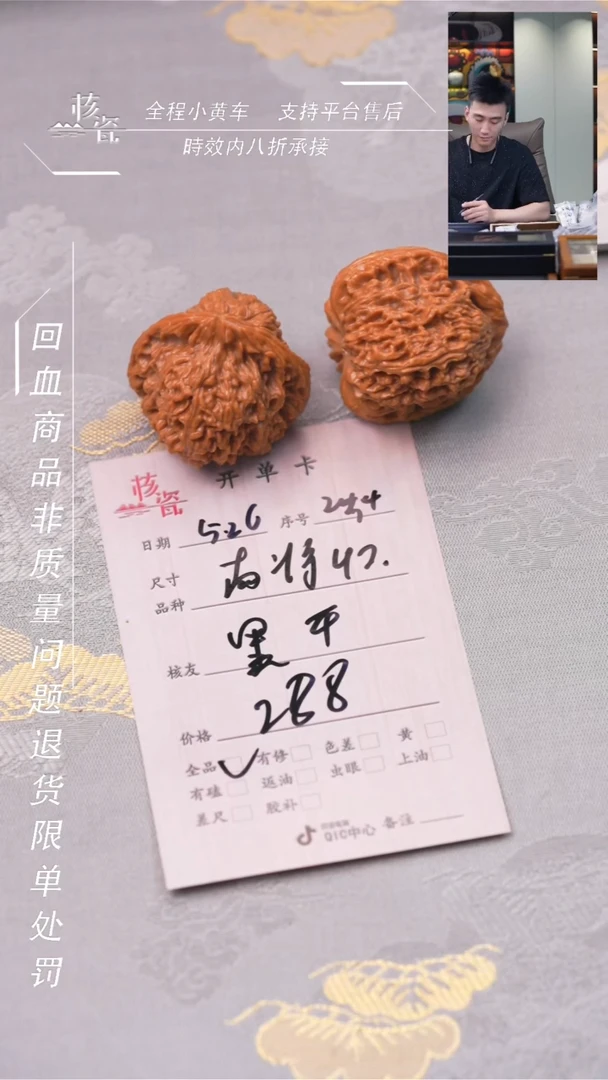 核瓷
全程小黄车 支持平台售后
時效内八折承接
回血商品非质量问题退货限单处罚
核瓷
开单卡
日期 5.26 序号
尺寸
品种
核友
价格 288
全品 有修 色差 黄
有磕 返油 虫眼 上油
差尺 胶补
QIC中心 备注